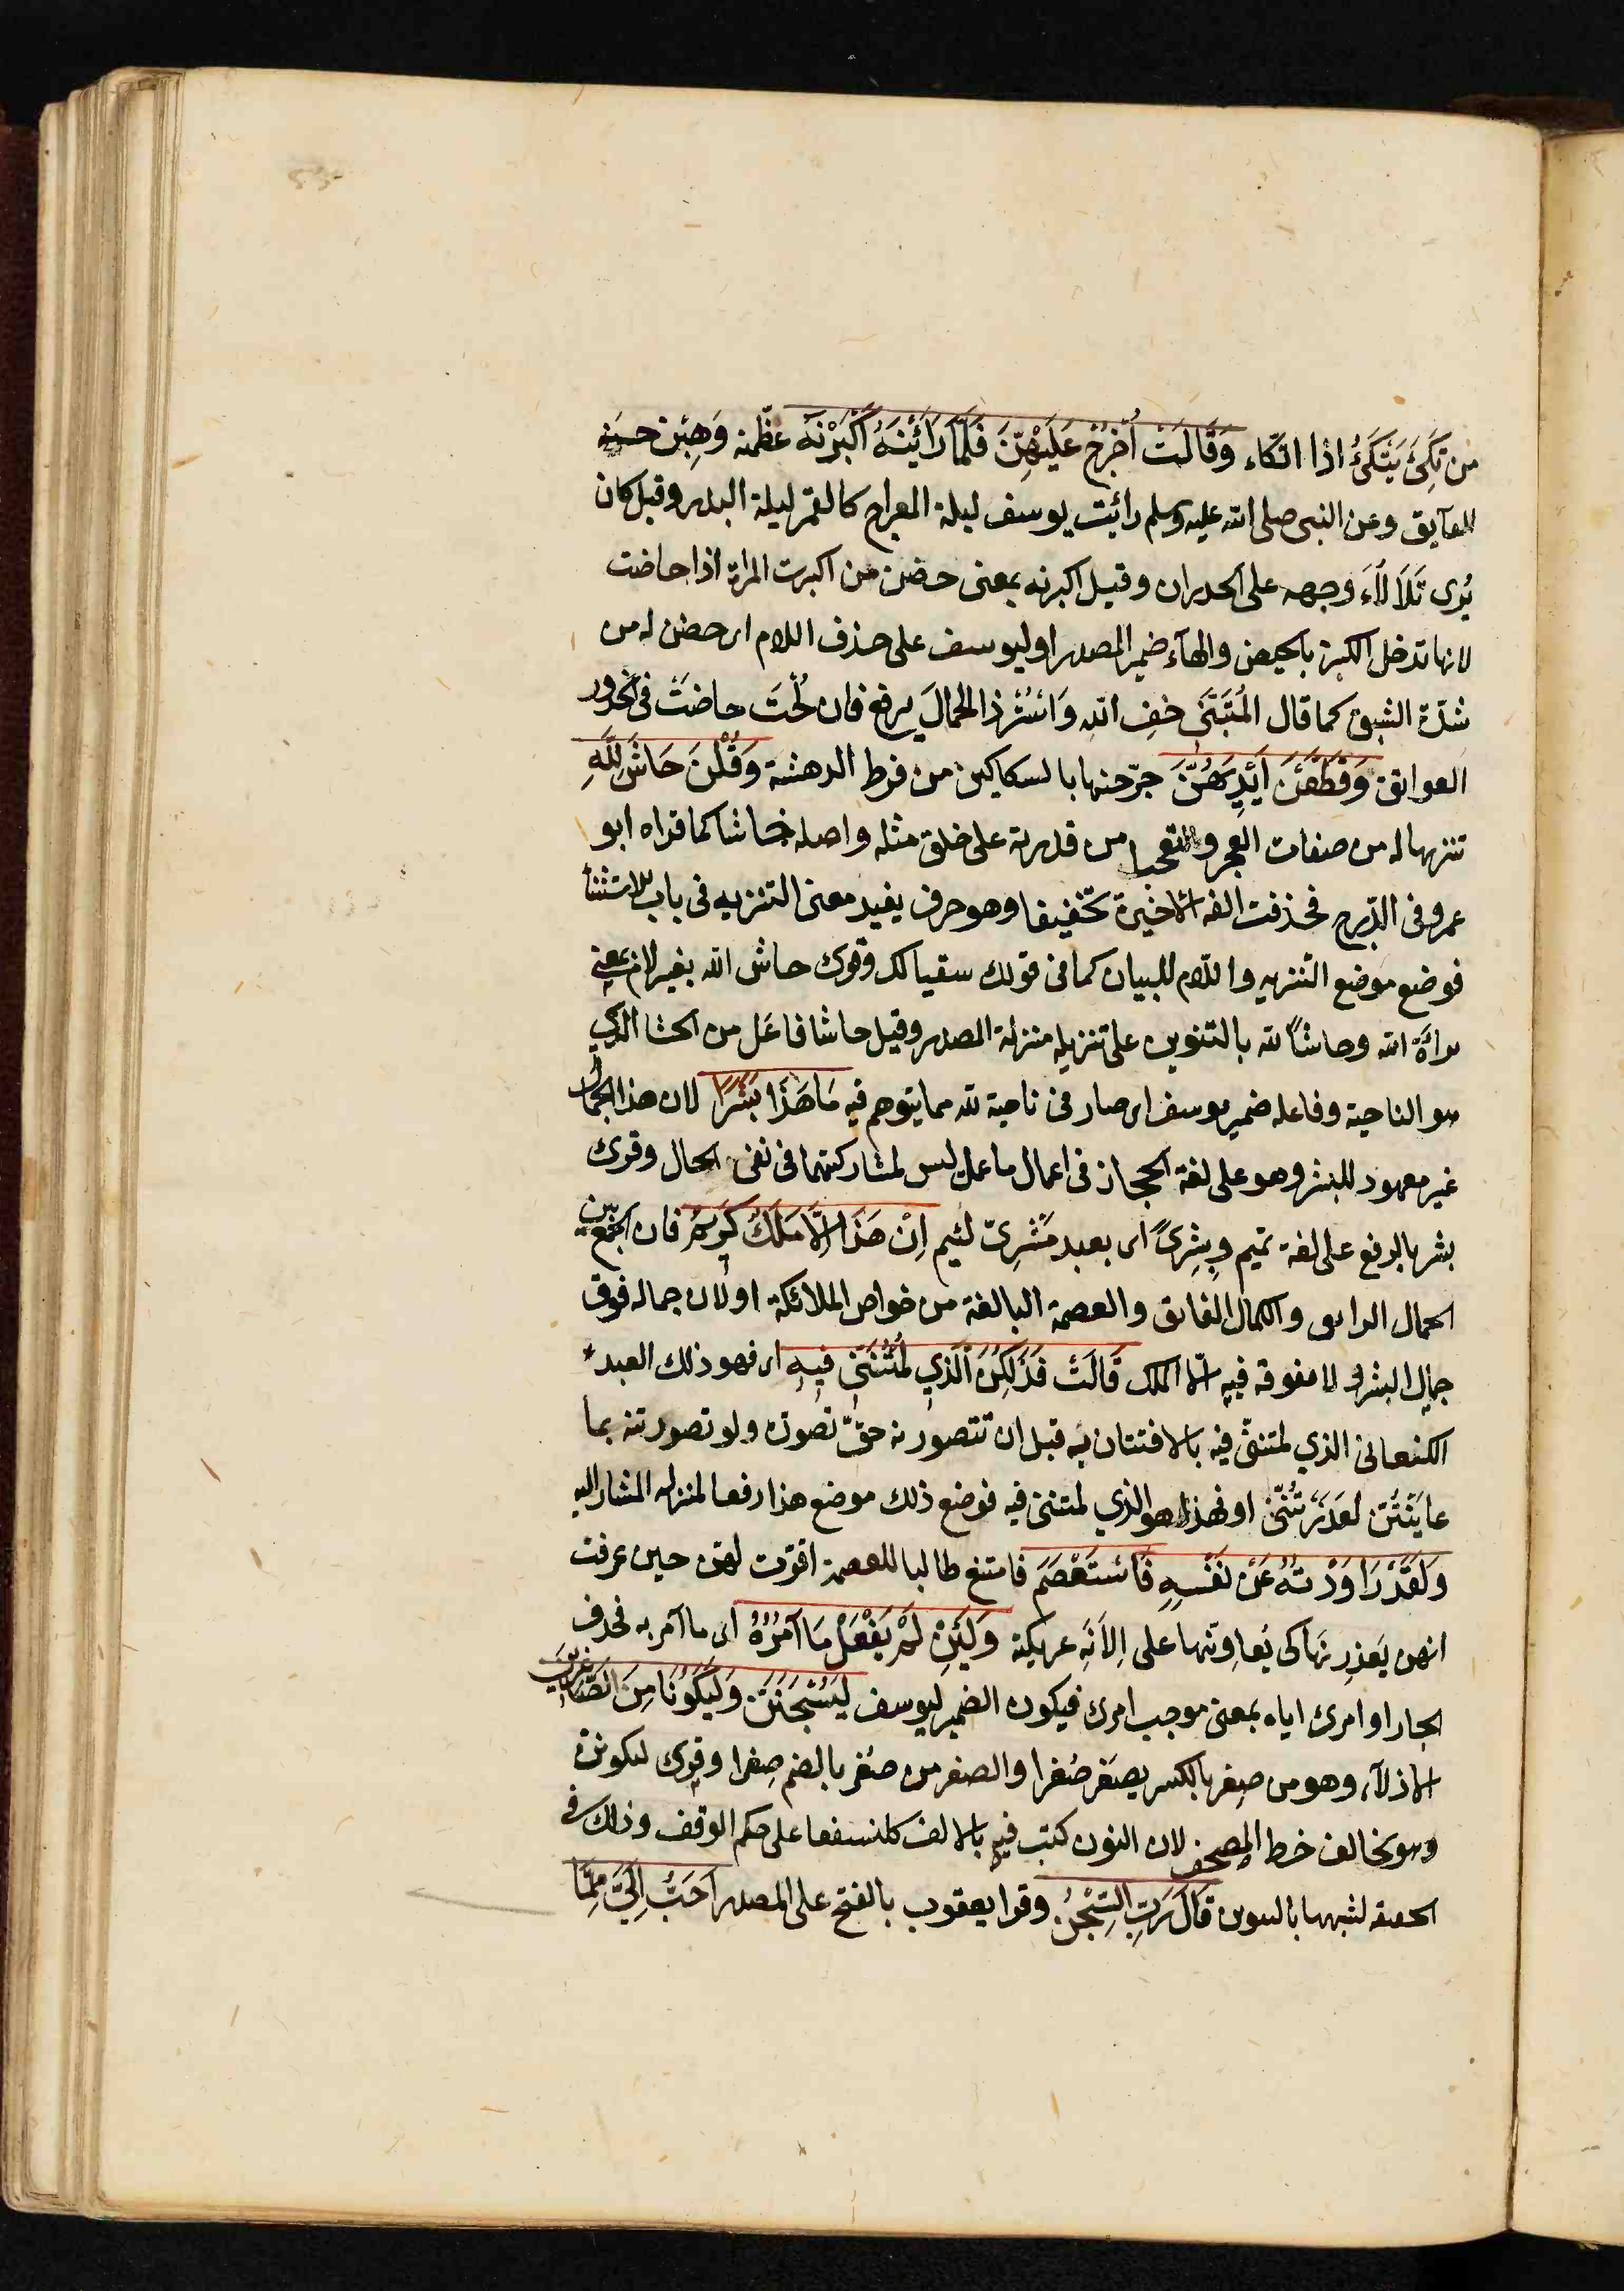 من تَكِئَ يَتْكَئُ اذا اتكاء وَقَالَتْ اُخْرُجْ عَلَيْهِنَّ فَلَمَّا رَاَيْنَهُ اَكْبَرْنَهُ عظّمنه وَهِبْن حسنه
الفآيق وعن النبى صلى الله عليه وسلم رائيت يوسف ليلة المعراج كالقمر ليلة البدر وقيل كان
يُرى تَلَاْلُاَء وجهه على الجدران وقيل اكبرنه بمعنى حضن من اكبرت المراة اذا حاضت
لانها تدخل الكبر بالحيض والهآء ضمير المصدر او ليوسف على حذف اللام اى حضن له من
شدّة الشبق كما قال المُتَنَبّى خفِ الله وَاسْتُرْ ذا الجمالَ ببرقع فان لُحْتَ حاضَتْ فى الخدور
العواتق وَقَطَّعْنَ اَيْدِيَهُنَّ جرّحنها بالسكاكين من فرط الدهشة وَقُلْنَ حَاشَ لِلَّهِ
تنزيها له من صفات العجز والتعجب من قدرته على خلق مثله واصله حاشا كما قراه ابو
عمرو فى الدّرج فحذفت الفه الاخيرة تخفيفا وهو حرف يفيد معنى التنزيه فى باب الاستثنا
فوضع موضع التنزيه واللام للبيان كما فى قولك سقيا لك وقرئ حاش الله بغير لام بمعنى
براءَة الله وحاشاً لله بالتنوين على تنزيله منزلة المصدر وقيل حاشا فاعَل من الحشا الذي
هو الناحية وفاعله ضمير يوسف اى صار فى ناحية لله مما يتوهم فيه مَا هَذَا بَشَرًا لان هذا الجمال
غير معهود للبشر وهو على لغة الحجاز فى اعمال ما عمل ليس لمشاركتهما فى نفى الحال وقرئ
بشر بالرفع على لغة تميم وبِشِرىً اى بعبد مُشْرىً لئيم اِنْ هَذَا اِلَّا مَلَكٌ كَرِيمٌ فان الجمع بين
الجمال الرايق والكمال الفايق والعصمة البالغة من خواص الملائكة او لان جماله فوق
جمال البشر و لا مفوقه فيه الّا الملك قَالَتْ فَذَلِكُنَّ الَّذِي لُمْتُنَّنِى فِيهِ اى فهو ذلك العبد
الكنعانى الذي لمتننّى فيه بالافتتان به قبل ان تتصورنه حقّ تصوره ولو تصورتنه بما
عايَنْتُنّ لعَذَرْتُنَّنى او فهذا هو الذي لمتننى فيه فوضع ذلك موضع هذا رفعا لمنزله المشار اليه
وَلَقَدْ رَاوَدْتُهُ عَنْ نَفْسِهِ فَاسْتَعْصَمَ فامتنع طالبا للعصمة اقرّت لهنّ حين عرفت
انهن يَعذِرنَها كى يُعاوِنّها على الِانَةِ عريكته وَلَئِنْ لَمْ يَفْعَلْ مَا آمُرُهُ اى ما آمر به فحذف
الجار او امرى اياه بمعنى موجب امرى فيكون الضمير ليوسف لَيُسْجَنَنَّ وَلَيَكُونًا مِنَ الصَّاغِرِينَ
الاذلآء وهو من صغِر بالكسر يصغَر صُغرا والصغير من صغُر بالضم صِغرا وقرئ ليكوننّ
وهو يخالف خط المصحف لان النون كتب فيه بالالف كلنسفعا على حكم الوقف وذلك فى
الخفيفة لشبهها بالتنوين قَالَ رَبِّ السِّجْنُ وقرا يعقوب بالفتح على المصدر اَحَبُّ اِلَيَّ مِمَّا